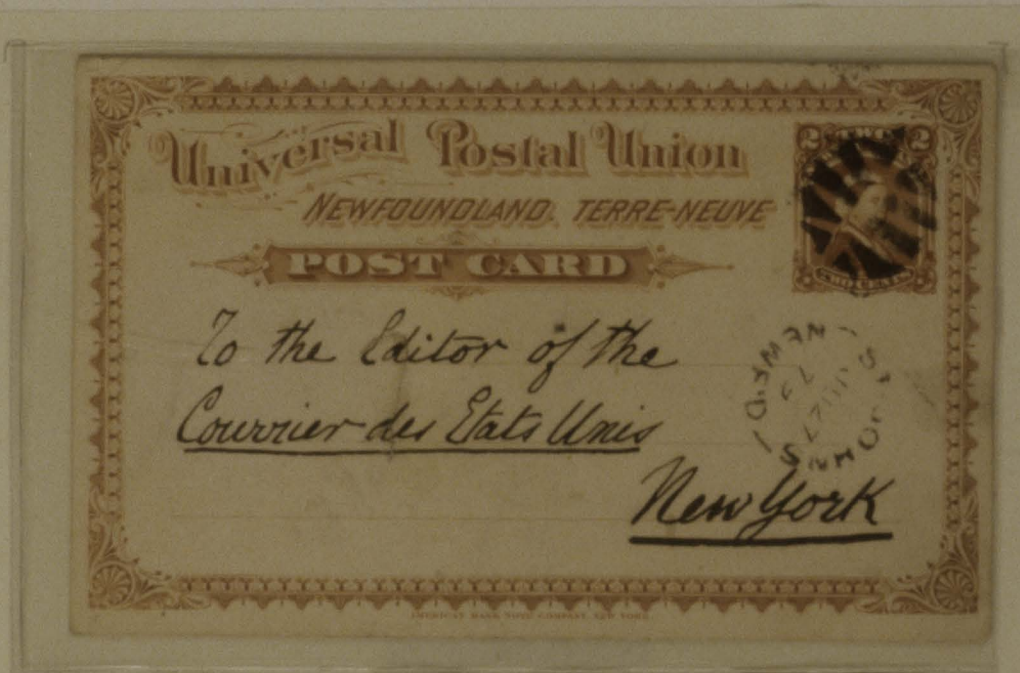 Universal Postal Union
2 TWO 2
NEWFOUNDLAND. TERRE-NEUVE
POST CARD
TWO CENTS
To the Editor of the
Courrier des Etats Unis
New York
ST JOHNS NEWF'D
79
AMERICAN BANK NOTE COMPANY, NEW YORK